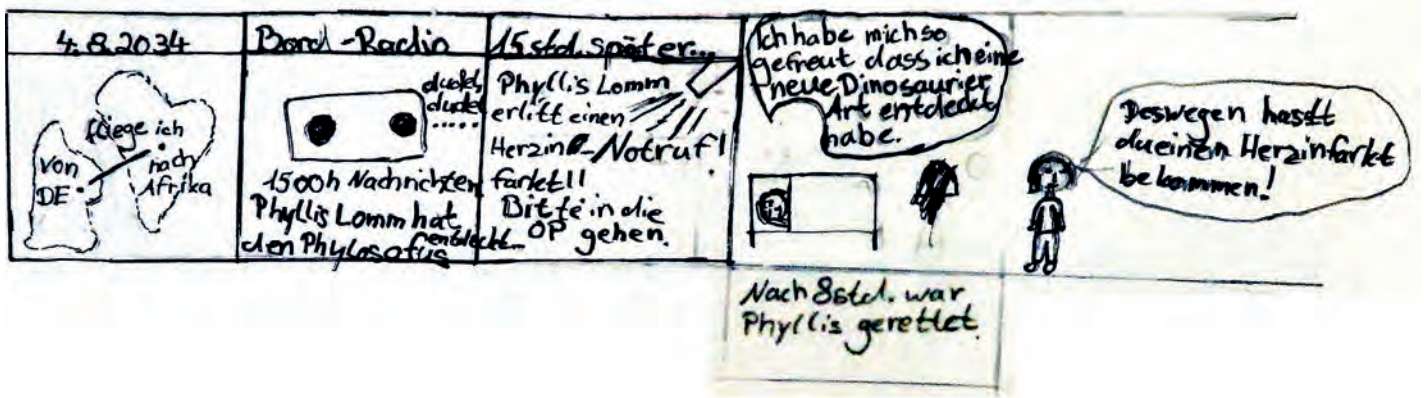 4.8.2034
fliege ich
von
DE
nach
Afrika
Bord-Radio
dudel,
dudel
.....
1500h Nachrichten
Phyllis Lomm hat
den Phylosafus entdeckt...
15 std. später...
Phyllis Lomm
erlitt einen
Herzin-
farkt!!
Notruf!
Bitte in die
OP gehen.
Ich habe mich so
gefreut dass ich eine
neue Dinosaurier
Art entdeckt
habe.
Nach 8 std. war
Phyllis gerettet.
Deswegen hasst
du einen Herzinfarkt
bekommen!